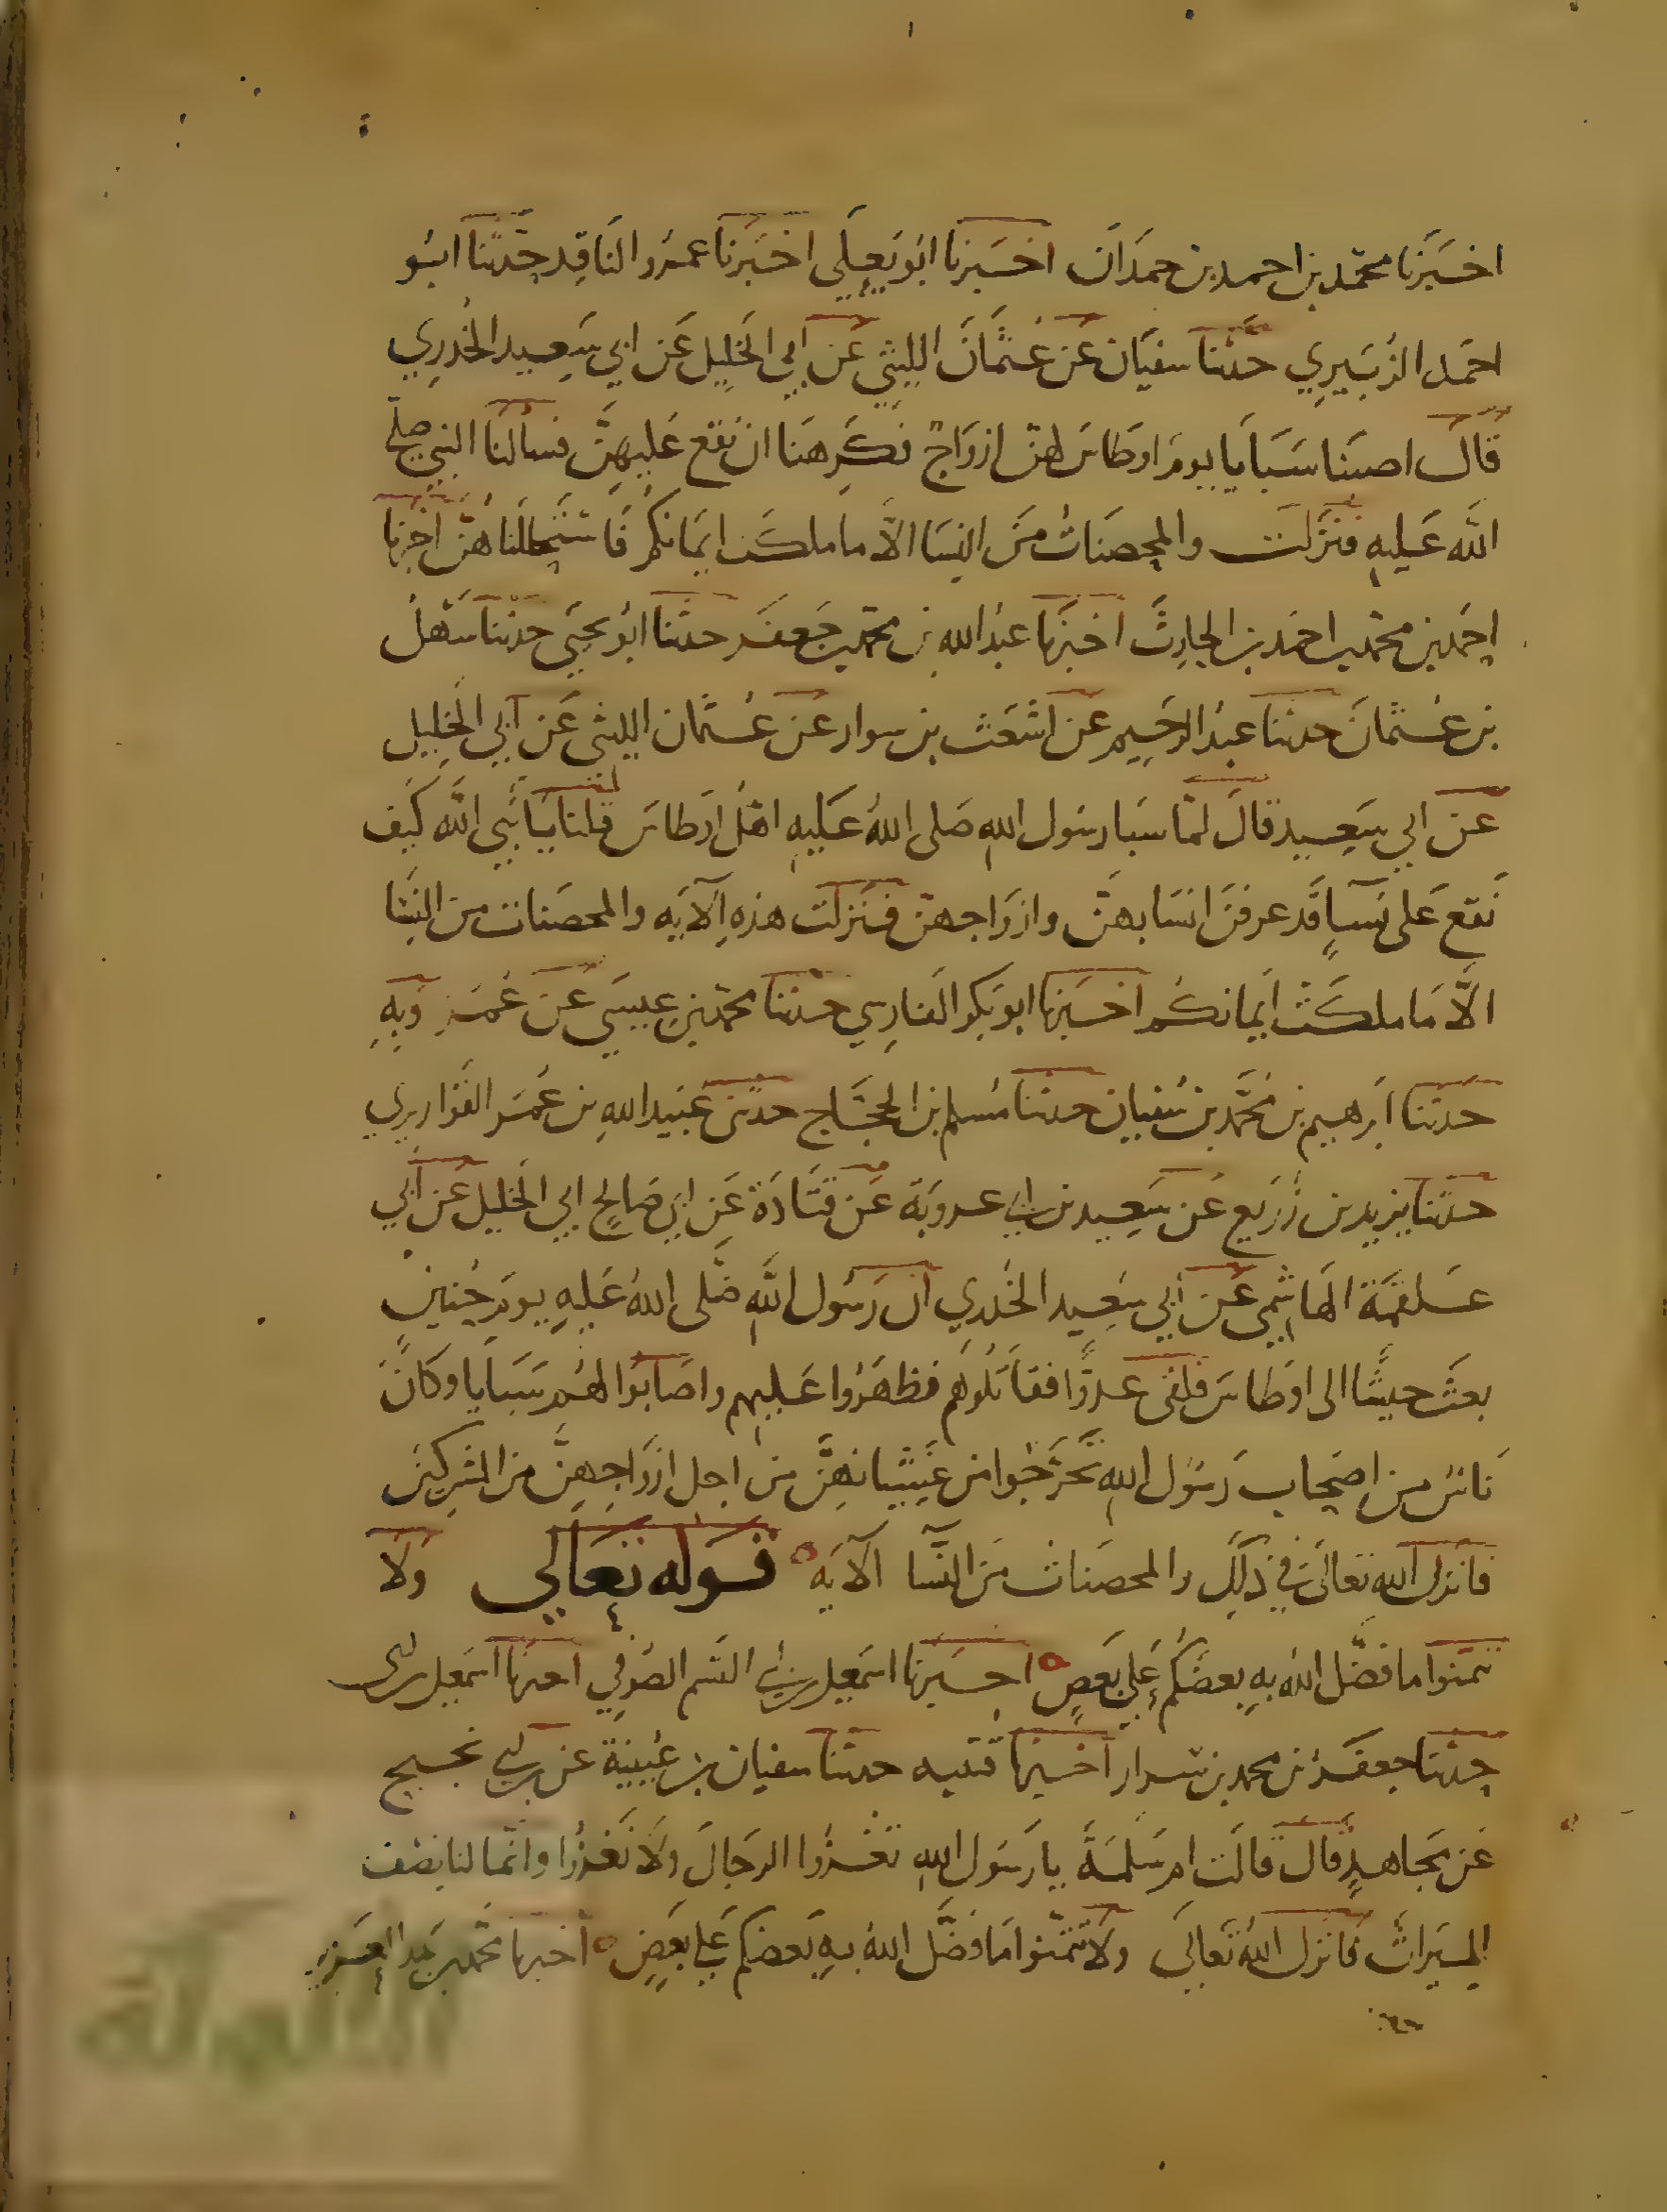 اخبرنا محمد بن احمد بن حمدان اخبرنا ابو يعلي اخبرنا عمرو الناقد حدثنا ابو
احمد الزبيري حدثنا سفيان عن عثمان الليثي عن ابي الخليل عن ابي سعيد الخدري
قال اصبنا سبايا يوم اوطاس لهن ازواج فكرهنا ان نقع عليهن فسالنا النبي صلى
الله عليه فنزلت والمحصنات من النسا الا ما ملكت ايمانكم فاستحللناهن اخبرنا
احمد بن محمد بن احمد بن الحارث اخبرنا عبد الله بن محمد بن جعفر حدثنا ابو يحيى حدثنا سهل
بن عثمان حدثنا عبد الرحيم عن اشعث بن سوار عن عثمان الليثي عن ابي الخليل
عن ابي سعيد قال لما سبا رسول الله صلى الله عليه اهل اوطاس قلنا يا نبي الله كيف
نقع على نسآ قد عرفن انسابهن وازواجهن فنزلت هذه الآيه والمحصنات من النسا
الا ما ملكت ايمانكم اخبرنا ابو بكر الفارسي حدثنا محمد بن عيسى عن عمرويه
حدثنا ابرهيم بن محمد بن سفيان حدثنا مسلم بن الحجاج حدثني عبيد الله بن عمر القواريري
حدثنا يزيد بن زريع عن سعيد بن ابي عروبة عن قتادة عن ابي صالح ابي الخليل عن ابي
علقمة الهاشمي عن ابي سعيد الخدري ان رسول الله صلى الله عليه يوم حنين
بعث جيشا الى اوطاس فلقى عدوا فقاتلوهم فظهروا عليهم واصابوا لهم سبايا وكان
ناس من اصحاب رسول الله تحرجوا من غشيانهن من اجل ازواجهن من المشركين
فانزل الله تعالى في ذلك والمحصنات من النسا الآيه قوله تعالي ولا
تتمنوا ما فضل الله به بعضكم علي بعض اخبرنا اسمعيل بن ابي القسم الصوفي اخبرنا اسمعيل بن
حدثنا جعفر بن محمد بن سوار اخبرنا قتيبه حدثنا سفيان بن عيينة عن ابن ابي نجيح
عن مجاهد قال قالت ام سلمة يا رسول الله تغزوا الرجال ولا نغزوا وانما لنا نصف
الميراث فانزل الله تعالى ولا تتمنوا ما فضل الله به بعضكم علي بعض اخبرنا محمد بن عبد العزيز